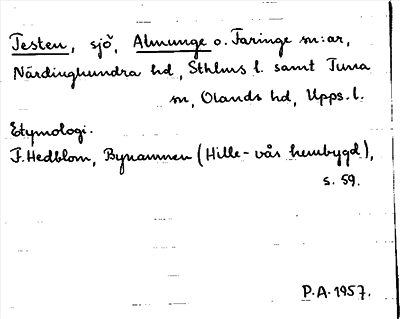 Testen, sjö, Almunge o. Faringe sn:ar,
Närdinghundra hd, Sthlms l. samt Tuna
sn, Olands hd, Upps. l.
Etymologi.
F. Hedblom, Bynamnen (Hille - vår hembygd),
s. 59.
P.A. 1957.